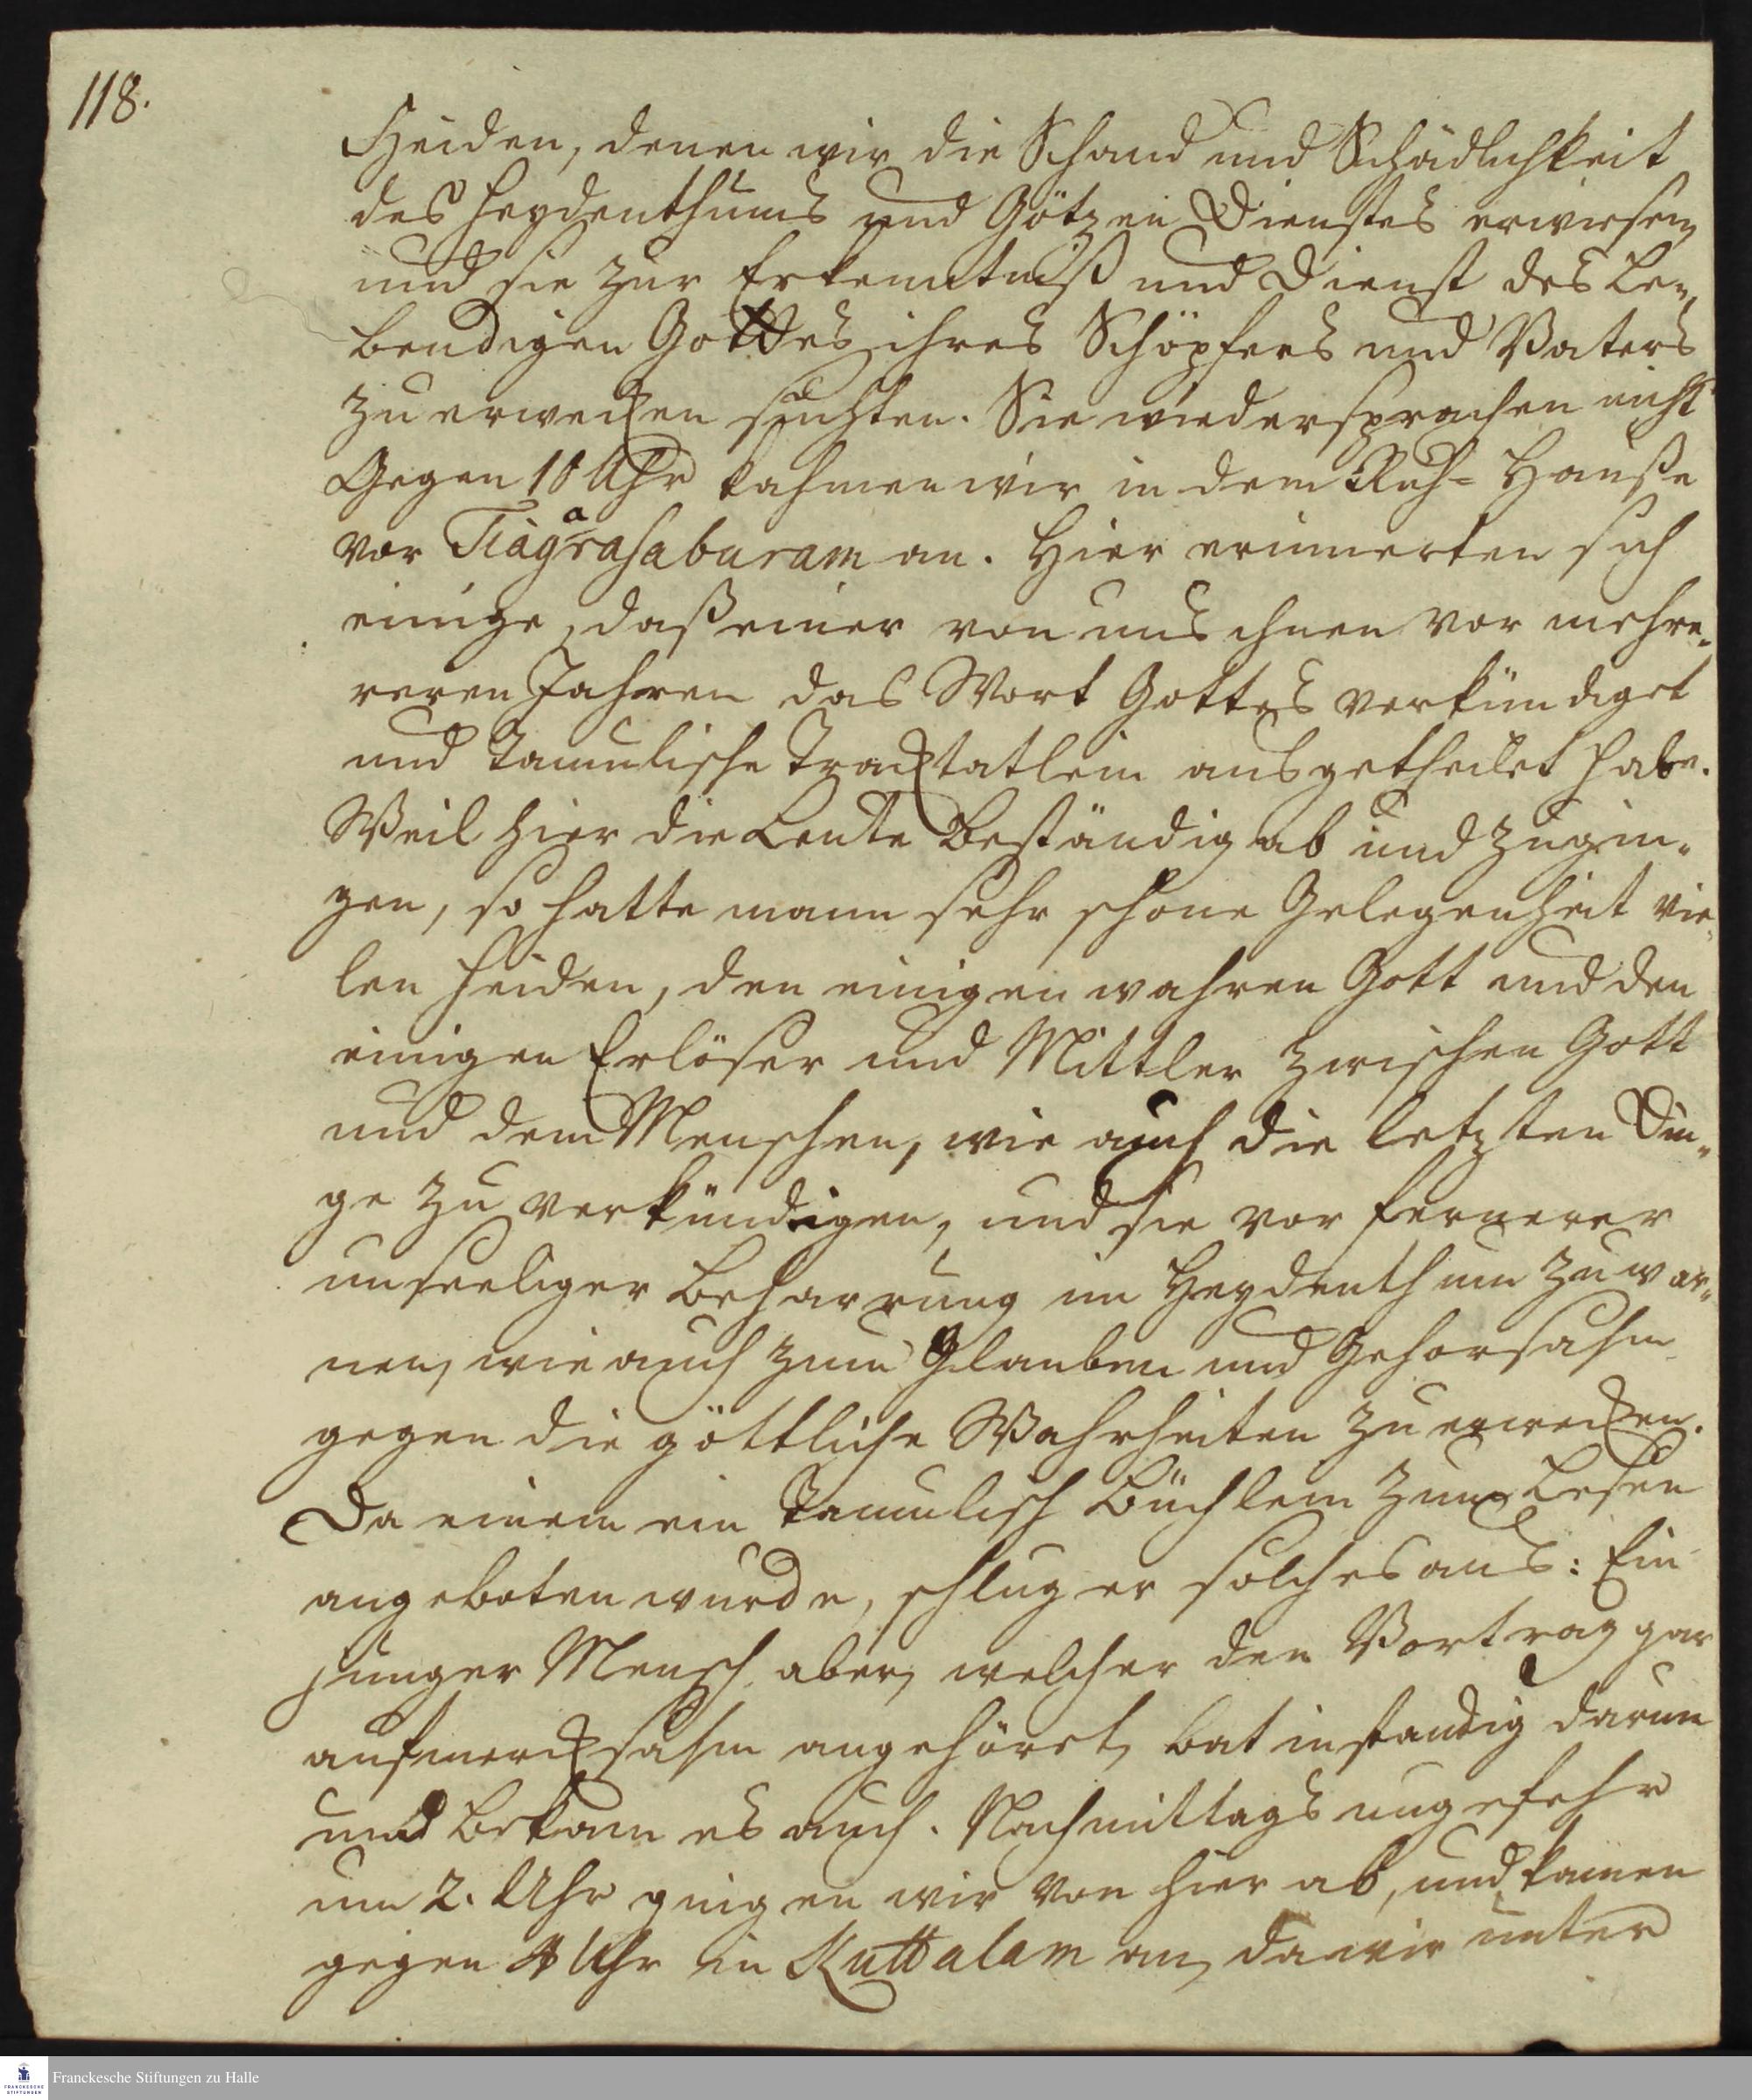 118.
Heiden, denen wir die Schand und Schädlichkeit
des Heydenthums und Götzen Dienstes erwiesen,
und sie zur Erkenntniß und Dienst des Le„
bendigen Gottes, ihres Schöpfers und Vaters
zu erwecken suchten. Sie wiedersprachen nicht
Gegen 10 Uhr kahmen wir in dem Ruh= Hauße
vor Tiagarasaburam an. Hier erinnerten sich
einige, daß einer von uns ihnen vor mehre„
reren Jahren das Wort Gottes verkündiget
und Tamulische Tractatlein ausgetheilet habe.
Weil hier die Leute beständig ab und zugin„
gen, so hatte mann sehr schöne Gelegenheit vie„
len Heiden, den einigen wahren Gott und den
einigen Erlöser und Mittler zwischen Gott
und dem Menschen, wie auch die letzten Din„
ge zu verkündigen, und sie vor fernerer
unseeliger Beharrung im Heydenthum zu war„
nen, wie auch zum Glauben und Gehorsahm
gegen die göttliche Wahrheiten zu erwecken.
Da einem ein Tamulisch Büchlein zum Lesen
angeboten wurde, schlug er solches aus: Ein
junger Mensch aber, welcher den Vortrag gar
aufmercksahm angehöret, bat inständig darum
und bekam es auch. Nachmittags ungefehr
um 2. Uhr gingen wir von hier ab, und kamen
gegen 4 Uhr in Kuttalam an, da wir unter
Franckesche Stiftungen zu Halle
FRANCKESCHE
STIFTUNGEN